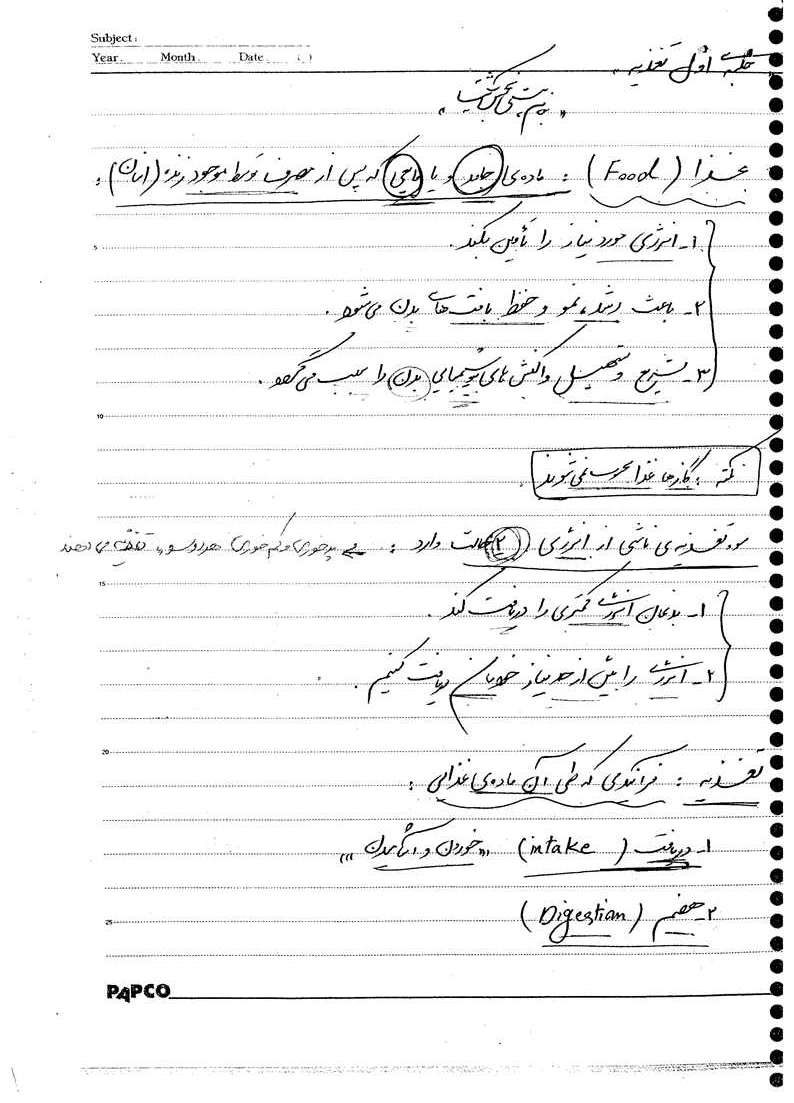 Subject:
Year. Month. Date. ( )
جلسه اول تغذیه
غذا (Food) : ماده‌ی جامد و یا مایعی که پس از مصرف توسط موجود زنده (انسان) :
۱- انرژی مورد نیاز را تأمین بکند.
۲- باعث رشد، نمو و حفظ بافت‌های بدن می‌شود.
۳- تسریع و تسهیل واکنش‌های بیوشیمیایی بدن را سبب می‌گردد.
نکته : گازها غذا محسوب نمی‌شوند.
سوء تغذیه‌ی ناشی از انرژی ۲ حالت دارد : پرخوری و کم خوری هر دو سوء تغذیه می دهند
۱- بدنمان انرژی کمتری را دریافت کند.
۲- انرژی را بیش از حد نیاز خودمان دریافت کنیم.
تغذیه : فرآیندی که طی آن ماده‌ی غذایی :
۱- دریافت (intake) "خوردن و آشامیدن"
۲- هضم (Digestian)
5
10
15
20
25
PAPCO